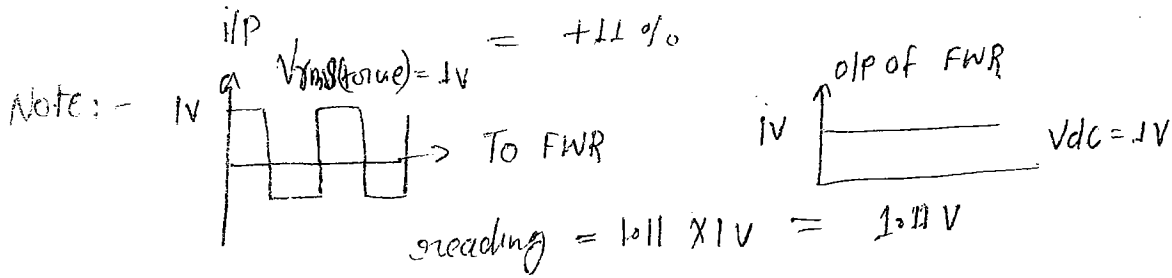 i/p = +11 %
Note:- 1V Vrms(true) = 1V To FWR
o/p of FWR
1V Vdc = 1V
reading = 1.11 X 1V = 1.11 V